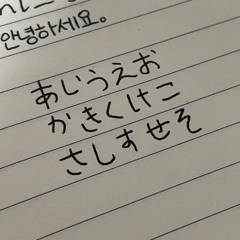 안녕하세요。
あじうえお
かきくけこ
さしすせそ